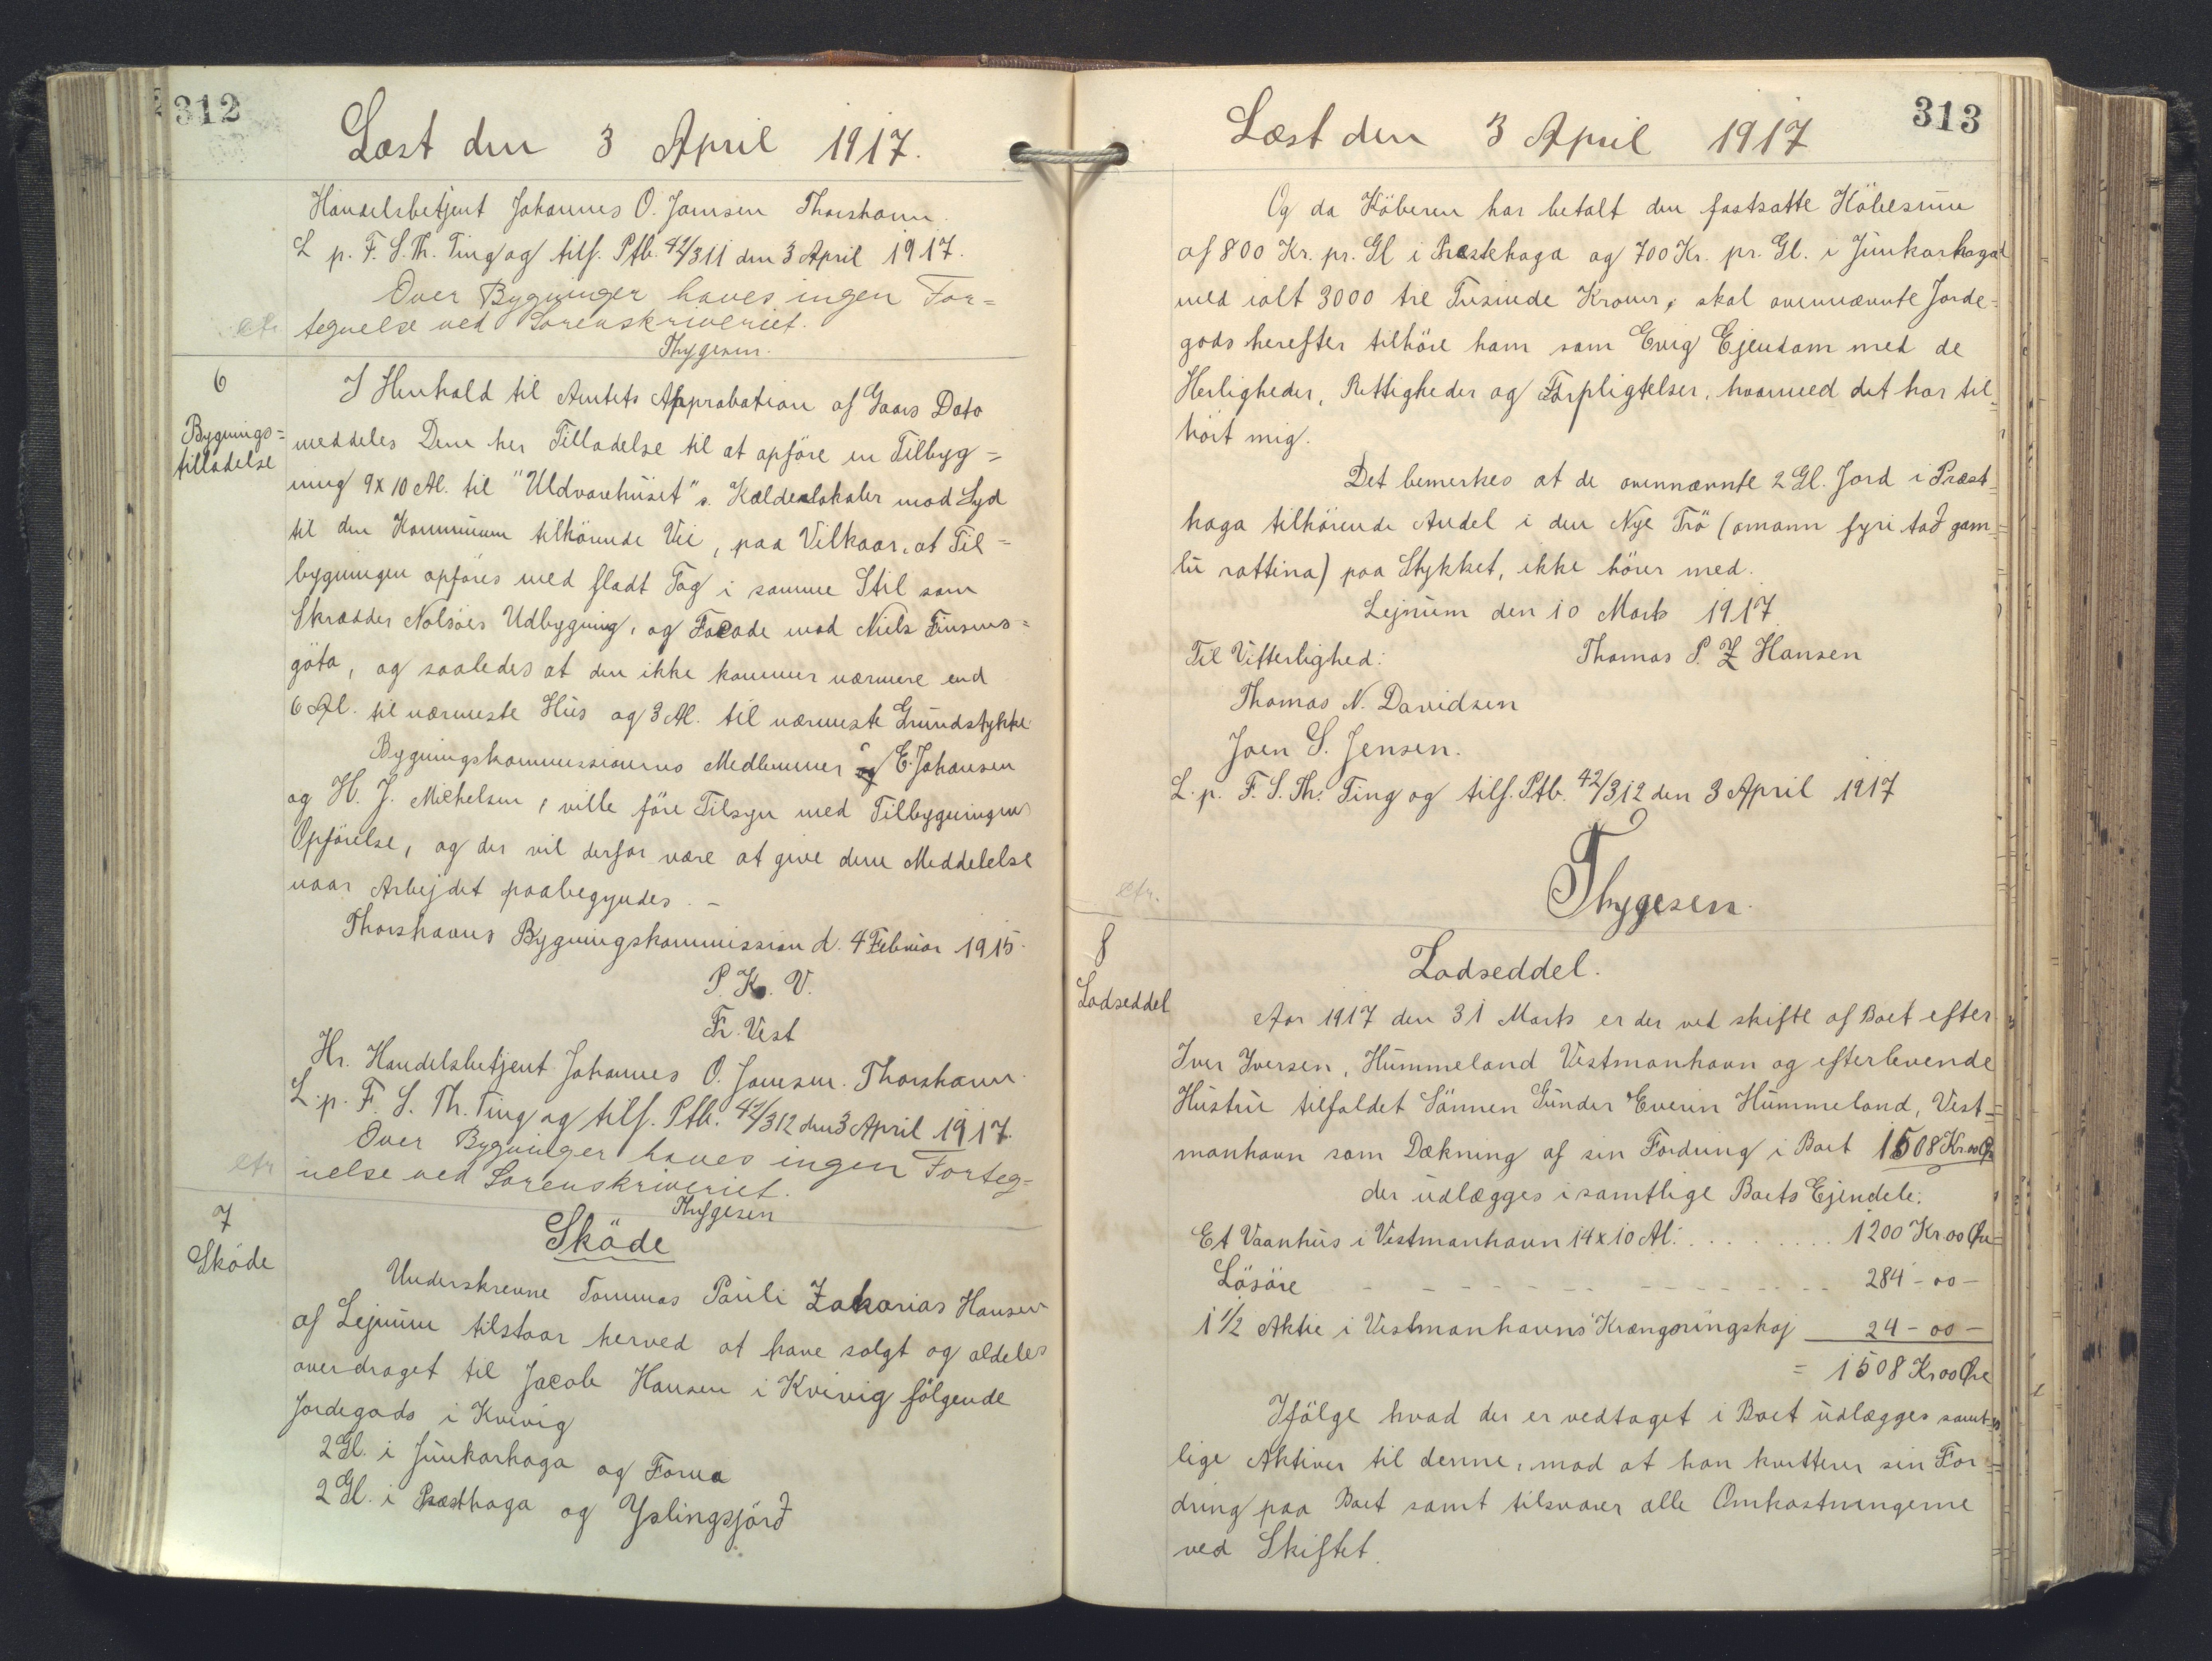 312
Læst den 3 April 1917.
Handelsbetjent Johannes O. Jamsen Thorshavn.
L p. F. S. Th. Ting og tilf. Ptb. 42/311 den 3 April 1917.
Over Bygninger haves ingen For=
ctr. tegnelse ved Sorenskriveriet.
Thygesen.
6
Bygnings=
tilladelse
I Henhold til Amtets Approbation af Gaars Dato
meddeles Dem her Tilladelse til at opföre en Tilbyg=
ning 9x10 Al. til "Uldvarehuset"s Kælderlokaler mod Syd
til den Kommunen tilhörende Vei, paa Vilkaar, at Til=
bygningen opföres med fladt Tag i samme Stil som
Skrædder Nolsöes Udbygning, og Facade mod Niels Finsens=
göta, og saaledes at den ikke kommer nærmere end
6 Al. til nærmeste Hus og 3 Al. til nærmeste Grundstykke
Bygningskommissionens Medlemmer E. Johansen
og H. J. Michelsen, ville före Tilsyn med Tilbygningens
Opförelse, og der vil derfor være at give dem Meddelelse
naar Arbejdet paabegyndes. –
Thorshavns Bygningskommission d. 4 Februar 1915.
P. K. V.
Fr. Vest
Hr. Handelsbetjent Johannes O. Jamsen. Thorshavn.
L. p. F. S. Th. Ting og tilf. Ptb. 42/312 den 3 April 1917.
Over Bygninger haves ingen Forteg=
ctr nelse ved Sorenskriveriet.
Thygesen
7
Sköde
Sköde
Underskrevne Tommas Pauli Zakarias Hansen
af Lejnum tilstaar herved at have solgt og aldeles
overdraget til Jacob Hansen i Kvivig fölgende
Jordegods i Kvivig
2 Gl. i Junkarhaga og Forna
2 Gl. i Præsthaga og Yslingsjörð
313
Læst den 3 April 1917
Og da Köberen har betalt den fastsatte Köbesum
af 800 Kr. pr. Gl i Præstehaga og 700 Kr. pr. Gl. i Junkarhaga
med ialt 3000 tre Tusinde Kroner, skal ovennævnte Jorde=
gods herefter tilhöre ham som Evig Ejendom med de
Herligheder, Rettigheder og Forpligtelser, hvormed det har til=
hört mig.
Det bemerkes at de ovennævnte 2 Gl. Jord i Præst=
haga tilhörende Andel i den Nye Trö (omann fyri tað gam=
lu rættina) paa Stykket, ikke hörer med.
Lejnum den 10 Marts 1917
Til Vitterlighed: Thomas P. Z Hansen
Thomas N. Davidsen
Joen S. Jensen.
L. p. F. S. Th. Ting og tilf. Ptb. 42/312 den 3 April 1917
Thygesen.
ctr.
8
Lodseddel
Lodseddel.
Aar 1917 den 31 Marts er der ved skifte af Boet efter
Iver Iversen, Hummeland Vestmanhavn og efterlevende
Hustru tilfaldet Sönnen Gunder Everin Hummeland, Vest=
manhavn som Dækning af sin Fordring i Boet 1508 Kr. 00 Ø
der udlægges i samtlige Boets Ejendele:
Et Vaanhus i Vestmanhavn 14x10 Al: . . . . . . . . . 1200 Kr 00 Øre
Lösöre - - - - - - - - - - 284 - 00 -
1 1/2 Aktie i Vestmanhavns Krængningskaj 24 - 00 -
= 1508 Kr 00 Øre
Ifölge hvad der er vedtaget i Boet udlægges samt=
lige Aktiver til denne, mod at han kvitterer sin For=
dring paa Boet samt tilsvarer alle Omkostningerne
ved Skiftet.